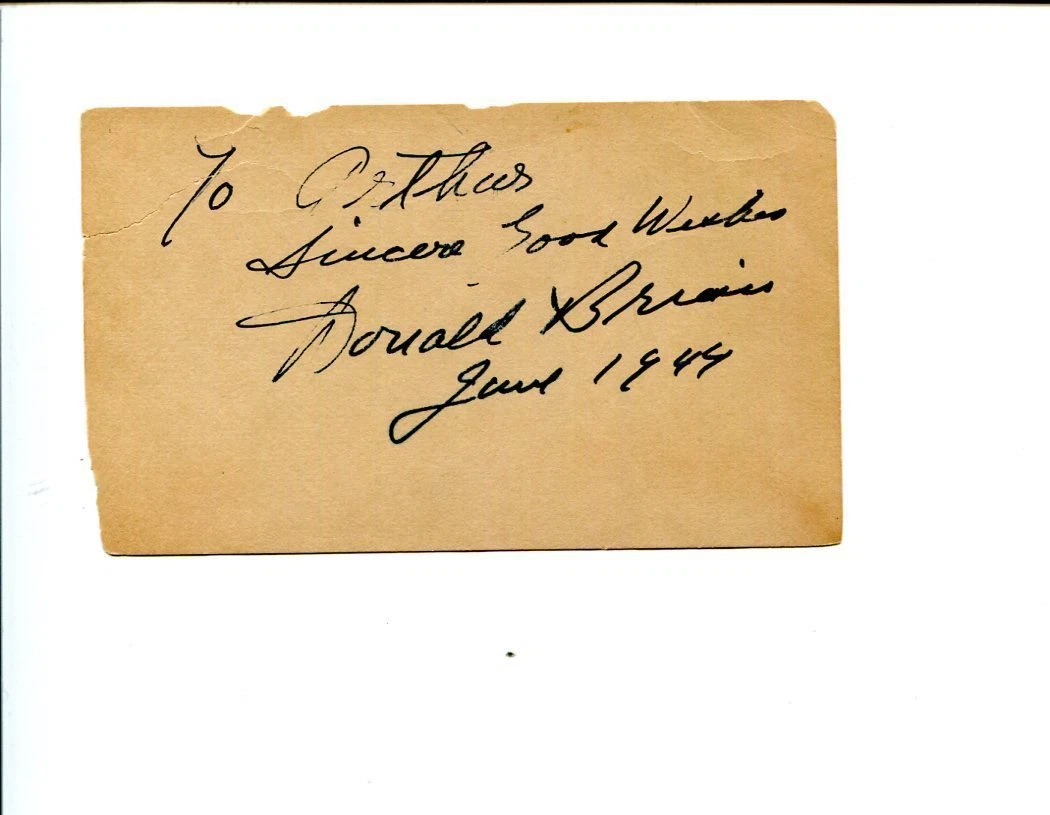 To Arthur
Sincere Good Wishes
Donald Brian
June 1944